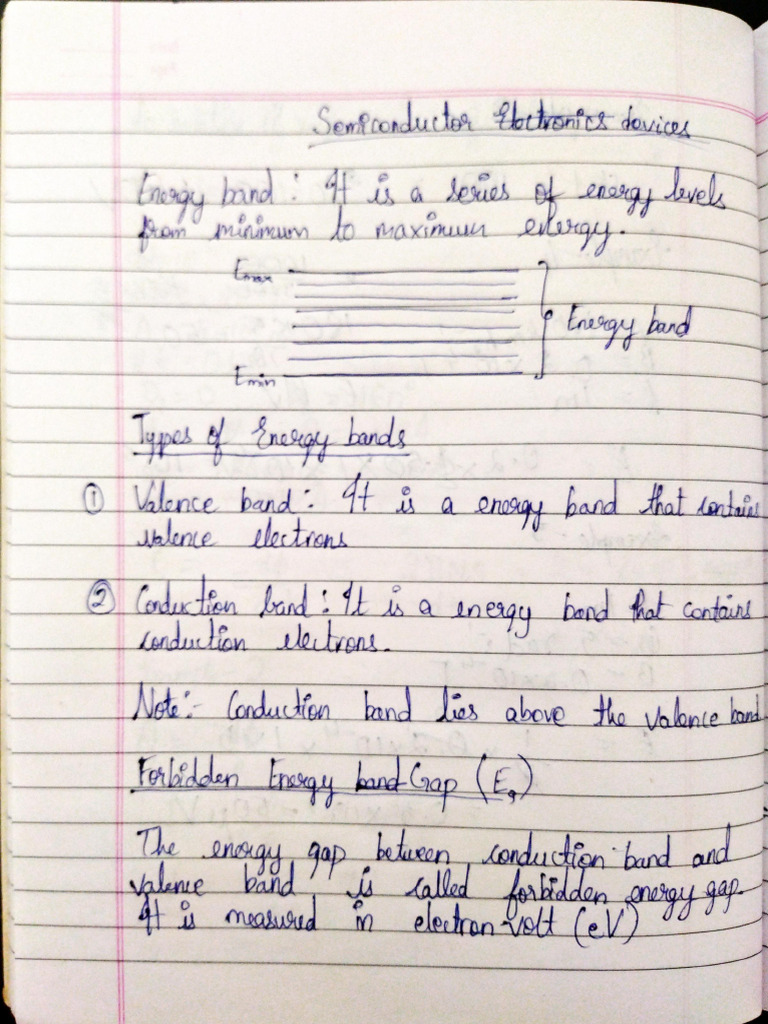 Semiconductor Electronics devices
Energy band : It is a series of energy levels
from minimum to maximum energy.
Emax
Energy band
Emin
Types of Energy bands
① Valence band : It is a energy band that contains
valence electrons
② Conduction band : It is a energy band that contains
conduction electrons.
Note :- Conduction band lies above the valence band
Forbidden Energy band Gap (Eg)
The energy gap between conduction band and
valence band is called forbidden energy gap.
It is measured in electron-volt (eV)